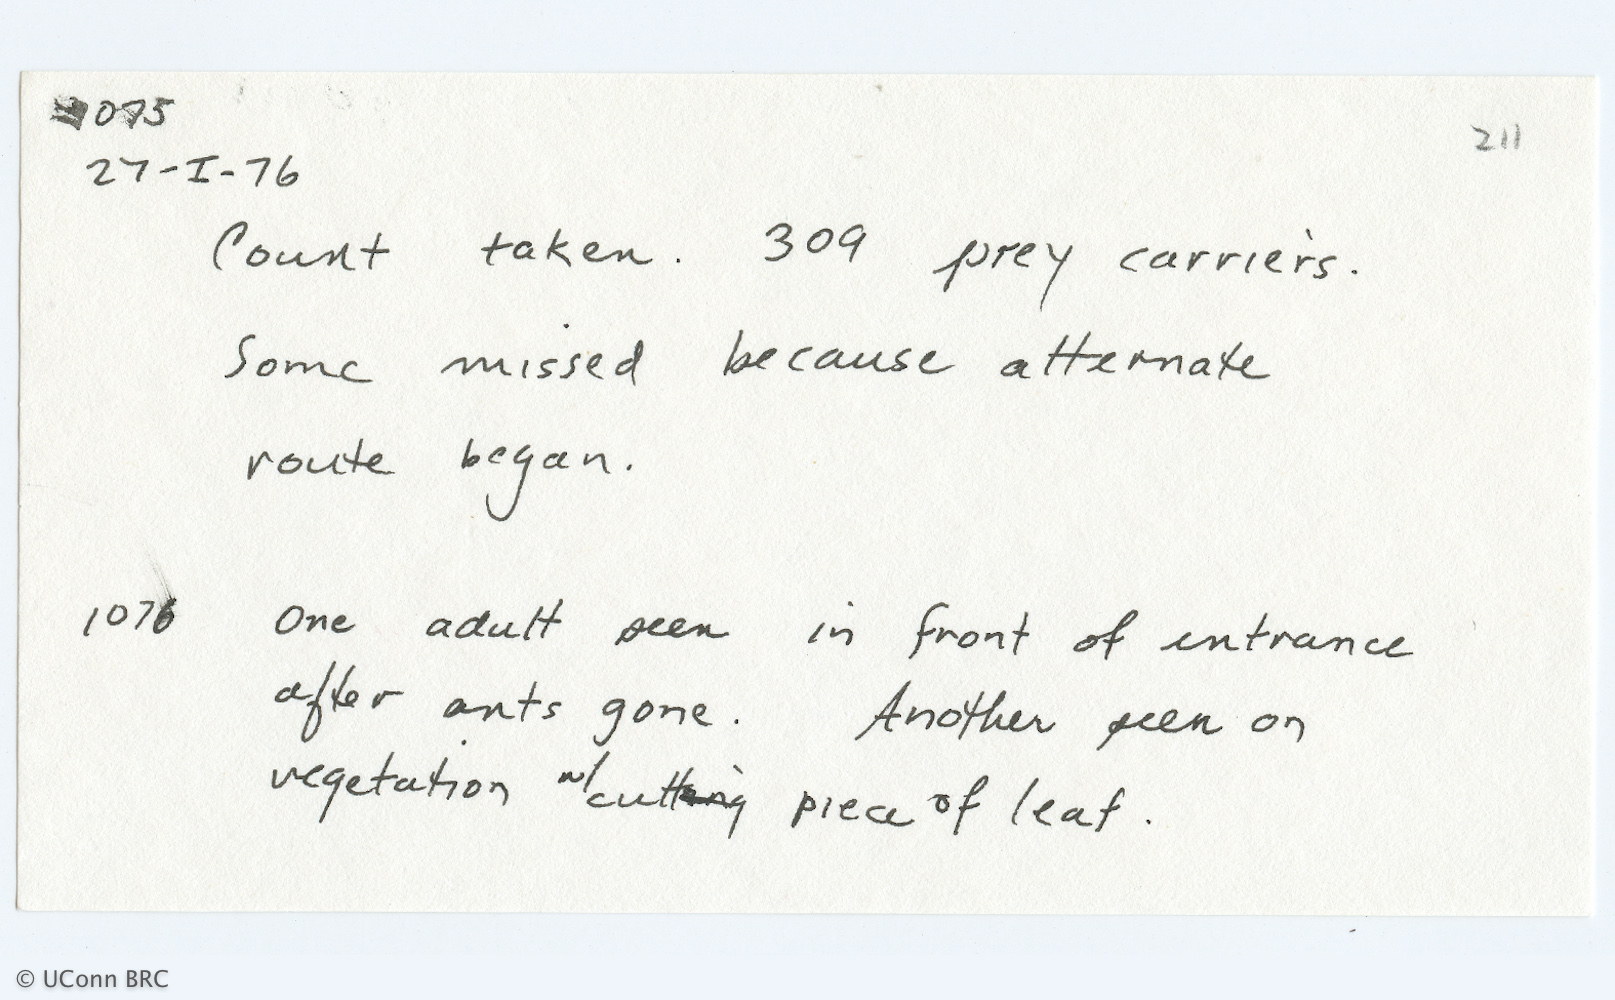 1075
211
27-I-76
Count taken. 309 prey carriers.
Some missed because alternate
route began.
1076 One adult seen in front of entrance
after ants gone. Another seen on
vegetation w/ cut piece of leaf.
© UConn BRC